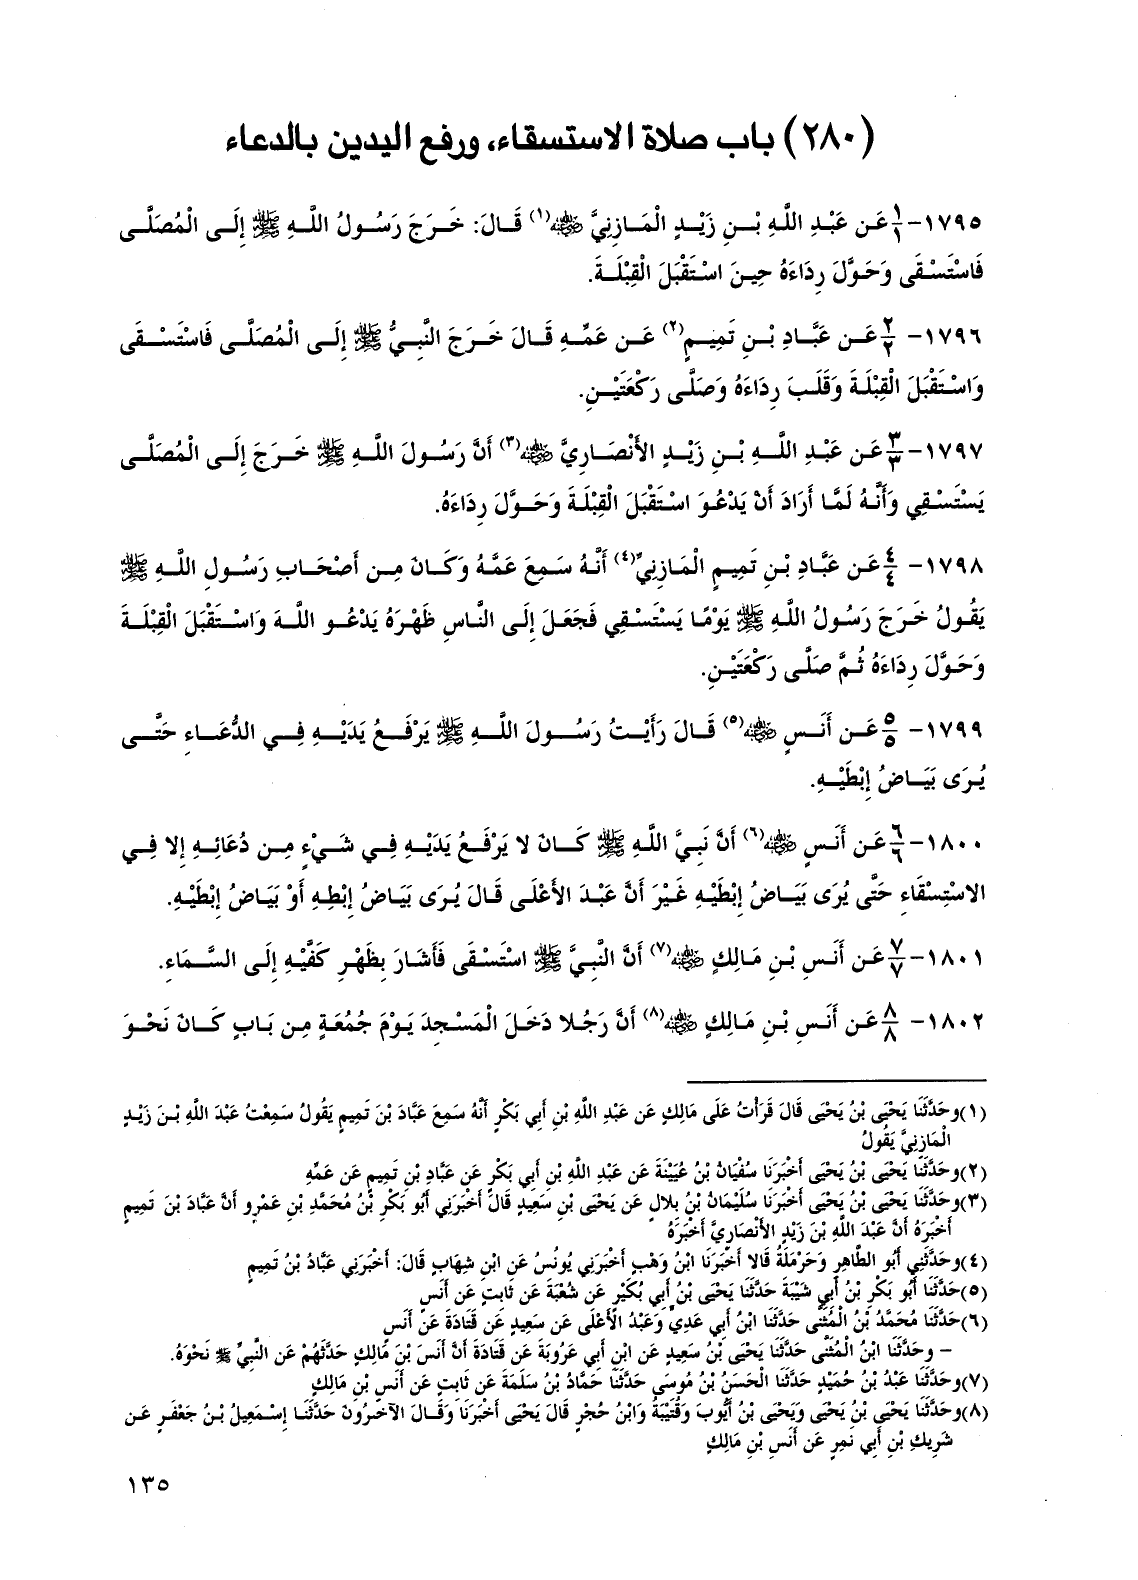 (٢٨٠) باب صلاة الاستسقاء، ورفع اليدين بالدعاء
١٧٩٥-١/١ عَن عَبْدِ اللَّهِ بْنِ زَيْدٍ الْمَازِنِيَّ ﵁(١) قَالَ: خَرَجَ رَسُولُ اللَّهِ ﷺ إِلَى الْمُصَلَّى
فَاسْتَسْقَى وَحَوَّلَ رِدَاءَهُ حِينَ اسْتَقْبَلَ الْقِبْلَةَ.
١٧٩٦- ٢/٢ عَن عَبَّادِ بْنِ تَمِيمٍ(٢) عَن عَمِّهِ قَالَ خَرَجَ النَّبِيُّ ﷺ إِلَى الْمُصَلَّى فَاسْتَسْقَى
وَاسْتَقْبَلَ الْقِبْلَةَ وَقَلَبَ رِدَاءَهُ وَصَلَّى رَكْعَتَيْنِ.
١٧٩٧- ٣/٣ عَن عَبْدِ اللَّهِ بْنِ زَيْدٍ الأَنْصَارِيَّ ﵁(٣) أَنَّ رَسُولَ اللَّهِ ﷺ خَرَجَ إِلَى الْمُصَلَّى
يَسْتَسْقِي وَأَنَّهُ لَمَّا أَرَادَ أَنْ يَدْعُوَ اسْتَقْبَلَ الْقِبْلَةَ وَحَوَّلَ رِدَاءَهُ.
١٧٩٨- ٤/٤ عَن عَبَّادِ بْنِ تَمِيمٍ الْمَازِنِيِّ(٤) أَنَّهُ سَمِعَ عَمَّهُ وَكَانَ مِن أَصْحَابِ رَسُولِ اللَّهِ ﷺ
يَقُولُ خَرَجَ رَسُولُ اللَّهِ ﷺ يَوْمًا يَسْتَسْقِي فَجَعَلَ إِلَى النَّاسِ ظَهْرَهُ يَدْعُو اللَّهَ وَاسْتَقْبَلَ الْقِبْلَةَ
وَحَوَّلَ رِدَاءَهُ ثُمَّ صَلَّى رَكْعَتَيْنِ.
١٧٩٩- ٥/٥ عَن أَنَسٍ ﵁(٥) قَالَ رَأَيْتُ رَسُولَ اللَّهِ ﷺ يَرْفَعُ يَدَيْهِ فِي الدُّعَاءِ حَتَّى
يُرَى بَيَاضُ إِبْطَيْهِ.
١٨٠٠- ٦/٦ عَن أَنَسٍ ﵁(٦) أَنَّ نَبِيَّ اللَّهِ ﷺ كَانَ لا يَرْفَعُ يَدَيْهِ فِي شَيْءٍ مِن دُعَائِهِ إِلا فِي
الاسْتِسْقَاءِ حَتَّى يُرَى بَيَاضُ إِبْطَيْهِ غَيْرَ أَنَّ عَبْدَ الأَعْلَى قَالَ يُرَى بَيَاضُ إِبْطِهِ أَوْ بَيَاضُ إِبْطَيْهِ.
١٨٠١- ٧/٧ عَن أَنَسِ بْنِ مَالِكٍ ﵁(٧) أَنَّ النَّبِيَّ ﷺ اسْتَسْقَى فَأَشَارَ بِظَهْرِ كَفَّيْهِ إِلَى السَّمَاءِ.
١٨٠٢- ٨/٨ عَن أَنَسِ بْنِ مَالِكٍ ﵁(٨) أَنَّ رَجُلا دَخَلَ الْمَسْجِدَ يَوْمَ جُمُعَةٍ مِن بَابٍ كَانَ نَحْوَ
(١)وحَدَّثَنَا يَحْيَى بْنُ يَحْيَى قَالَ قَرَأْتُ عَلَى مَالِكٍ عَن عَبْدِ اللَّهِ بْنِ أَبِي بَكْرٍ أَنَّهُ سَمِعَ عَبَّادَ بْنَ تَمِيمٍ يَقُولُ سَمِعْتُ عَبْدَ اللَّهِ بْنَ زَيْدٍ
الْمَازِنِيَّ يَقُولُ
(٢)وحَدَّثَنَا يَحْيَى بْنُ يَحْيَى أَخْبَرَنَا سُفْيَانُ بْنُ عُيَيْنَةَ عَن عَبْدِ اللَّهِ بْنِ أَبِي بَكْرٍ عَن عَبَّادِ بْنِ تَمِيمٍ عَن عَمِّهِ
(٣)وحَدَّثَنَا يَحْيَى بْنُ يَحْيَى أَخْبَرَنَا سُلَيْمَانُ بْنُ بِلالٍ عَن يَحْيَى بْنِ سَعِيدٍ قَالَ أَخْبَرَنِي أَبُو بَكْرِ بْنُ مُحَمَّدِ بْنِ عَمْرٍو أَنَّ عَبَّادَ بْنَ تَمِيمٍ
أَخْبَرَهُ أَنَّ عَبْدَ اللَّهِ بْنَ زَيْدٍ الأَنْصَارِيَّ أَخْبَرَهُ
(٤)وحَدَّثَنِي أَبُو الطَّاهِرِ وَحَرْمَلَةُ قَالا أَخْبَرَنَا ابْنُ وَهْبٍ أَخْبَرَنِي يُونُسُ عَنِ ابْنِ شِهَابٍ قَالَ: أَخْبَرَنِي عَبَّادُ بْنُ تَمِيمٍ
(٥)حَدَّثَنَا أَبُو بَكْرِ بْنُ أَبِي شَيْبَةَ حَدَّثَنَا يَحْيَى بْنُ أَبِي بُكَيْرٍ عَن شُعْبَةَ عَن ثَابِتٍ عَن أَنَسٍ
(٦)حَدَّثَنَا مُحَمَّدُ بْنُ الْمُثَنَّى حَدَّثَنَا ابْنُ أَبِي عَدِيٍّ وَعَبْدُ الأَعْلَى عَن سَعِيدٍ عَن قَتَادَةَ عَن أَنَسٍ
– وحَدَّثَنَا ابْنُ الْمُثَنَّى حَدَّثَنَا يَحْيَى بْنُ سَعِيدٍ عَنِ ابْنِ أَبِي عَرُوبَةَ عَن قَتَادَةَ أَنَّ أَنَسَ بْنَ مَالِكٍ حَدَّثَهُمْ عَنِ النَّبِيِّ ﷺ نَحْوَهُ.
(٧)وحَدَّثَنَا عَبْدُ بْنُ حُمَيْدٍ حَدَّثَنَا الْحَسَنُ بْنُ مُوسَى حَدَّثَنَا حَمَّادُ بْنُ سَلَمَةَ عَن ثَابِتٍ عَن أَنَسِ بْنِ مَالِكٍ
(٨)وحَدَّثَنَا يَحْيَى بْنُ يَحْيَى وَيَحْيَى بْنُ أَيُّوبَ وَقُتَيْبَةُ وَابْنُ حُجْرٍ قَالَ يَحْيَى أَخْبَرَنَا وَقَالَ الآخَرُونَ حَدَّثَنَا إِسْمَعِيلُ بْنُ جَعْفَرٍ عَن
شَرِيكِ بْنِ أَبِي نَمِرٍ عَن أَنَسِ بْنِ مَالِكٍ
١٣٥